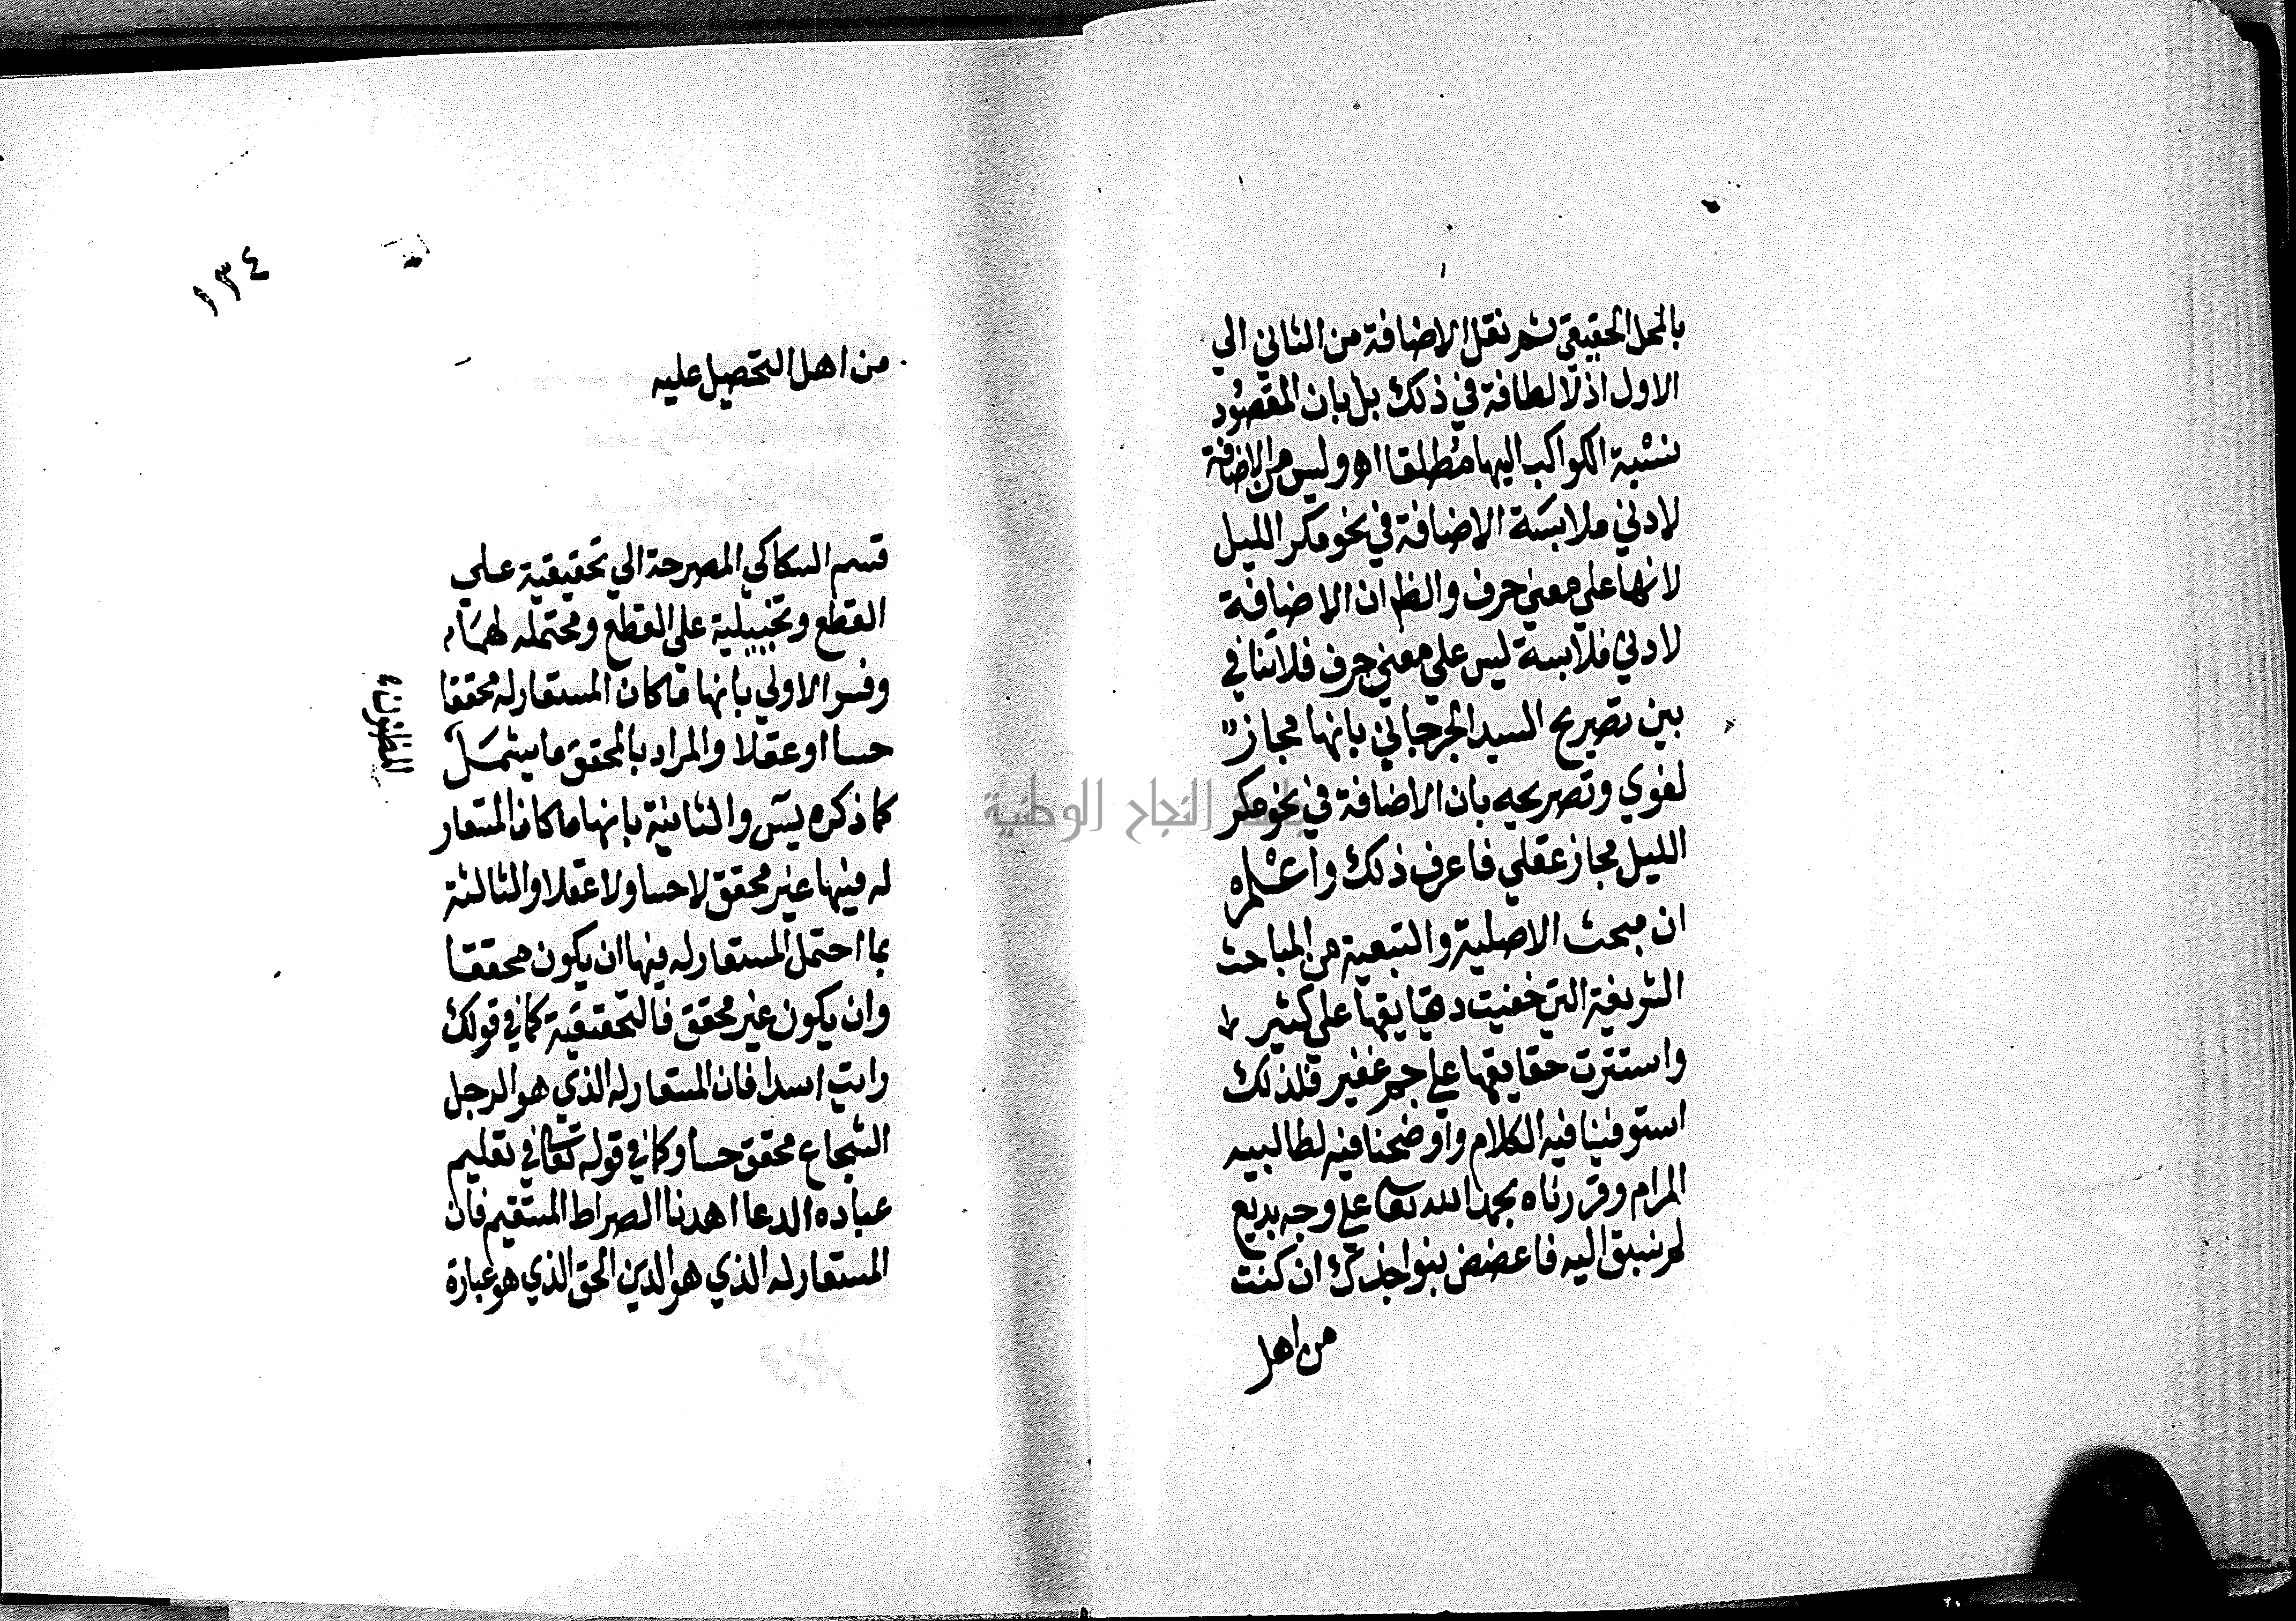 بالمحل الحقيقي ثم نقل الاضافة من الثاني الي
الاول اذ لا لطافة في ذلك بل بان المقصود
نسبة الكواكب اليها مطلقا اه وليس من الاضافة
لادني ملابسة الاضافة في نحو مكر الليل
لانها علي معني حرف والظم ان الاضافة
لادني ملابسة ليس علي معني حرف فلا تنافي
بين تصريح السيد الجرجاني بانها مجاز
لغوي وتصريحه بان الاضافة في نحو مكر
الليل مجاز عقلي فاعرف ذلك واعلم
ان مبحث الاصلية والتبعية من المباحث
الشريفة التي خفيت دقايقها علي كثير
واستترت حقايقها علي جم غفير فلذلك
استوفينا فيه الكلام واوضحنا فيه لطالبيه
المرام وقررناه بحمد الله تعا علي وجه بديع
لم نسبق اليه فاعضض بنواجذك ان كنت
من اهل
١٣٤
من اهل التحصيل عليه
قسم السكاكي المصرحة الي تحقيقية علي
القطع وتخييلية علي القطع ومحتمله لهما
وفسر الاولي بانها ما كان المستعار له محققا
حسا او عقلا والمراد بالمحقق ما يشمل
كما ذكره يس والثانية بانها ما كان المستعار
له فيها غير محقق لا حسا ولا عقلا والثالثة
بما احتمل المستعار له فيها ان يكون محققا
وان يكون غير محقق فالتحقيقية كما في قولك
رايت اسدا فان المستعار له الذي هو الرجل
الشجاع محقق حسا وكما في قوله تعا في تعليم
عباده الدعا اهدنا الصراط المستقيم فان
المستعار له الذي هو الدين الحق الذي هو عبارة
جامعة النجاح الوطنية